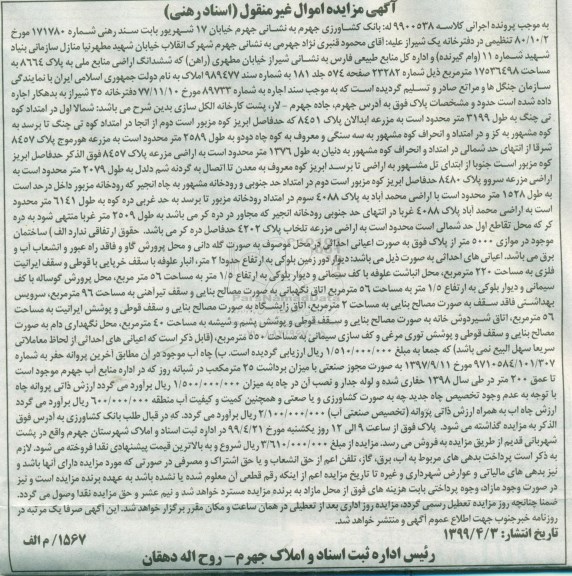 آگهی مزایده اموال غیرمنقول (اسناد رهنی)
به موجب پرونده اجرائی کلاسه ۹۹۰۰۵۳۸ له: بانک کشاورزی جهرم به نشانی جهرم خیابان ۱۷ شهریور بابت سند رهنی شماره ۱۷۱۷۸۰ مورخ
۸۰/۱۰/۲ تنظیمی در دفترخانه یک شیراز علیه: آقای محمود قنبری نژاد جهرمی به نشانی جهرم شهرک انقلاب خیابان شهید مطهرنیا منازل سازمانی بنیاد
شهید شماره ۱۱ (وام گیرنده) و اداره کل منابع طبیعی فارس به نشانی شیراز خیابان مطهری (راهن) که ششدانگ اراضی منابع ملی به پلاک ۸۶۶۴ به
مساحت ۱۷۵۳۶۴۹۸ مترمربع ذیل شماره ۲۳۲۸۲ صفحه ۵۷۴ جلد ۱۸۱ به شماره سند ۹۸۹۴۷۷ املاک به نام دولت جمهوری اسلامی ایران با نمایندگی
سازمان جنگل ها و مراتع صادر و تسلیم گردیده است که به موجب سند اجاره به شماره ۸۹۷۳۳ مورخ ۷۷/۱۱/۱۰ دفترخانه ۳۵ شیراز به بدهکار اجاره
داده شده است حدود و مشخصات پلاک فوق به آدرس جهرم، جاده جهرم – لار، پشت کارخانه الکل سازی بدین شرح می باشد: شمالا اول در امتداد کوه
تی چنگ به طول ۳۱۹۹ متر محدود است به مزرعه ابدالان پلاک ۸۴۵۱ که حدفاصل ابریز کوه مزبور است دوم از انجا در امتداد کوه تی چنگ تا برسد به
کوه مشهور به کز و در امتداد و انحراف کوه مشهور به سه سنگی و معروف به کوه چاه دودو به طول ۲۵۸۹ متر محدود است به مزرعه هورموج پلاک ۸۴۵۷
شرقا از انتهای حد شمالی در امتداد و انحراف کوه مشهور به دنیان به طول ۱۳۷۶ متر محدود است به اراضی مزرعه پلاک ۸۴۵۷ فوق الذکر حدفاصل ابریز
کوه مزبور است جنوبا از ابتدای تل مشهور به اراضی تا برسد ابریز کوه معروف به معدن تا اتصال به گردنه شم دلدل به طول ۲۰۷۹ متر محدود است به
اراضی مزرعه سروو پلاک ۸۴۸۰ حدفاصل ابریز کوه مزبور است دوم در امتداد حد جنوبی و رودخانه مشهور به چاه انجیر که رودخانه مزبور داخل درحد است
به طول ۱۵۲۸ متر محدود است با اراضی محمد آباد به پلاک ۴۰۸۸ سوم در امتداد رودخانه مزبور تا برسد به حد غربی دره کره به طول ۶۱۴۱ متر محدود
است به اراضی محمد آباد پلاک ۴۰۸۸ غربا در انتهای حد جنوبی رودخانه انجیر که مجاور در دره کر می باشد به طول ۲۵۰۹ متر غربا منتهی شود به دره
کر که محل تقاطع اول حد شمالی است محدود است به اراضی مزرعه تلخاب پلاک ۴۲۰۲ حدفاصل دره کر می باشد. حقوق ارتفاقی ندارد الف) ساختمان
موجود در موازی ۵۰۰۰ متر از پلاک فوق به صورت اعیانی احداثی در محل موصوف به صورت گله دانی و محل پرورش گاو و فاقد راه عبور و انشعاب آب و
برق می باشد. اعیانی های احداثی به صورت ذیل می باشد: دیوار دور زمین بلوکی به ارتفاع حدودا ۲ متر، انبار علوفه با سقف خرپایی با قوطی و سقف ایرانیت
فلزی به مساحت ۲۲۰ مترمربع، محل انباشت علوفه با کف سیمانی و دیوار بلوکی به ارتفاع ۱/۵ متر به مساحت ۵۶ متر مربع، محل پرورش گوساله با کف
سیمانی و دیوار بلوکی به ارتفاع ۱/۵ متر به مساحت ۵۶ مترمربع اتاق نگهبانی به صورت مصالح بنایی و سقف تیرآهنی به مساحت ۹۶ مترمربع، سرویس
بهداشتی فاقد سقف به صورت مصالح بنایی به مساحت ۲ مترمربع، اتاق زایشگاه به صورت مصالح بنایی و سقف قوطی و پوشش ایرانیت به مساحت
۵۶ مترمربع، اتاق شیردوش خانه به صورت مصالح بنایی و سقف قوطی و پوشش پشم و شیشه به مساحت ۴۰ مترمربع، محل نگهداری دام به صورت
مصالح بنایی و سقف قوطی و پوشش توری مرغی و کف سازی سیمانی به مساحت ۵۵۰ مترمربع، (قابل ذکر است که اعیانی های احداثی از لحاظ معاملاتی
سریعا سهل البیع نمی باشد) که جمعا به مبلغ ۱/۵۱۰/۰۰۰/۰۰۰ ریال ارزیابی گردیده است. ب) چاه آب موجود در آن مطابق آخرین پروانه حفر به شماره
۹۷۱۰۵۸۴/۱۰۱/۳۰۷ مورخ ۱۳۹۷/۹/۱۱ به صورت مجوز صنعتی با میزان برداشت ۲۵ مترمکعب در شبانه روز که در اداره منابع آب جهرم موجود است
تا عمق ۲۰۰ متر در طی سال ۱۳۹۸ حفاری شده و لوله جدار و نصب آن در چاه به میزان ۱/۵۰۰/۰۰۰/۰۰۰ ریال برآورد می گردد ارزش ذاتی پروانه چاه
با توجه به عدم وجود تخصیص چاه جدید چه به صورت کشاورزی و یا صنعتی و همچنین کمیت و کیفیت آب منطقه ۶۰۰/۰۰۰/۰۰۰ ریال برآورد می گردد
ارزش چاه آب به همراه ارزش ذاتی پروانه (تخصیص صنعتی آب) ۲/۱۰۰/۰۰۰/۰۰۰ ریال برآورد می گردد. که در قبال طلب بانک کشاورزی به آدرس فوق
الذکر به مزایده گذاشته می شود. پلاک فوق از ساعت ۹ الی ۱۲ روز یکشنبه مورخ ۹۹/۴/۲۱ در اداره ثبت اسناد و املاک شهرستان جهرم واقع در پشت
شهربانی قدیم از طریق مزایده به فروش می رسد. مزایده از مبلغ ۳/۶۱۰/۰۰۰/۰۰۰ ریال شروع و به بالاترین قیمت پیشنهادی نقدا فروخته می شود. لازم
به ذکر است پرداخت بدهی های مربوط به آب، برق، گاز، تلفن اعم از حق انشعاب و یا حق اشتراک و مصرفی در صورتی که مورد مزایده دارای آنها باشد و
نیز بدهی های مالیاتی و عوارض شهرداری و غیره تا تاریخ مزایده اعم از اینکه رقم قطعی آن معلوم شده یا نشده باشد به عهده برنده مزایده است و نیز
در صورت وجود مازاد، وجوه پرداختی بابت هزینه های فوق از محل مازاد به برنده مزایده مسترد خواهد شد و نیم عشر و حق مزایده نقدا وصول می گردد.
ضمنا چنانچه روز مزایده تعطیل رسمی گردد، مزایده روز اداری بعد از تعطیلی در همان ساعت و مکان مقرر برگزار خواهد شد. این آگهی صرفا یک مرتبه در
روزنامه خبرجنوب جهت اطلاع عموم آگهی و منتشر خواهد شد.
تاریخ انتشار: ۱۳۹۹/۴/۳
۱۵۶۷/ م الف
رئیس اداره ثبت اسناد و املاک جهرم – روح اله دهقان